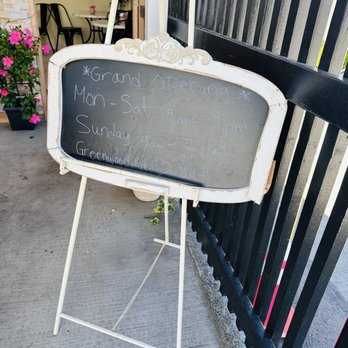 *Grand Opening*
Mon-Sat 9am 9pm
Sunday 9am
Greenwood